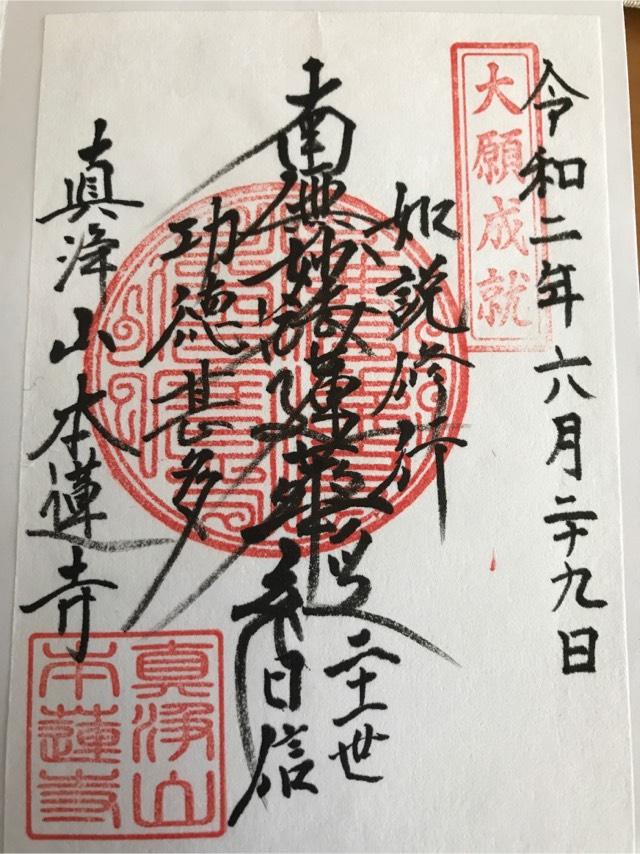 令和二年六月二十九日
大願成就
如説修行
南無妙法蓮華経
二十一世
日信
功徳甚多
真浄山本蓮寺
真浄山
本蓮寺